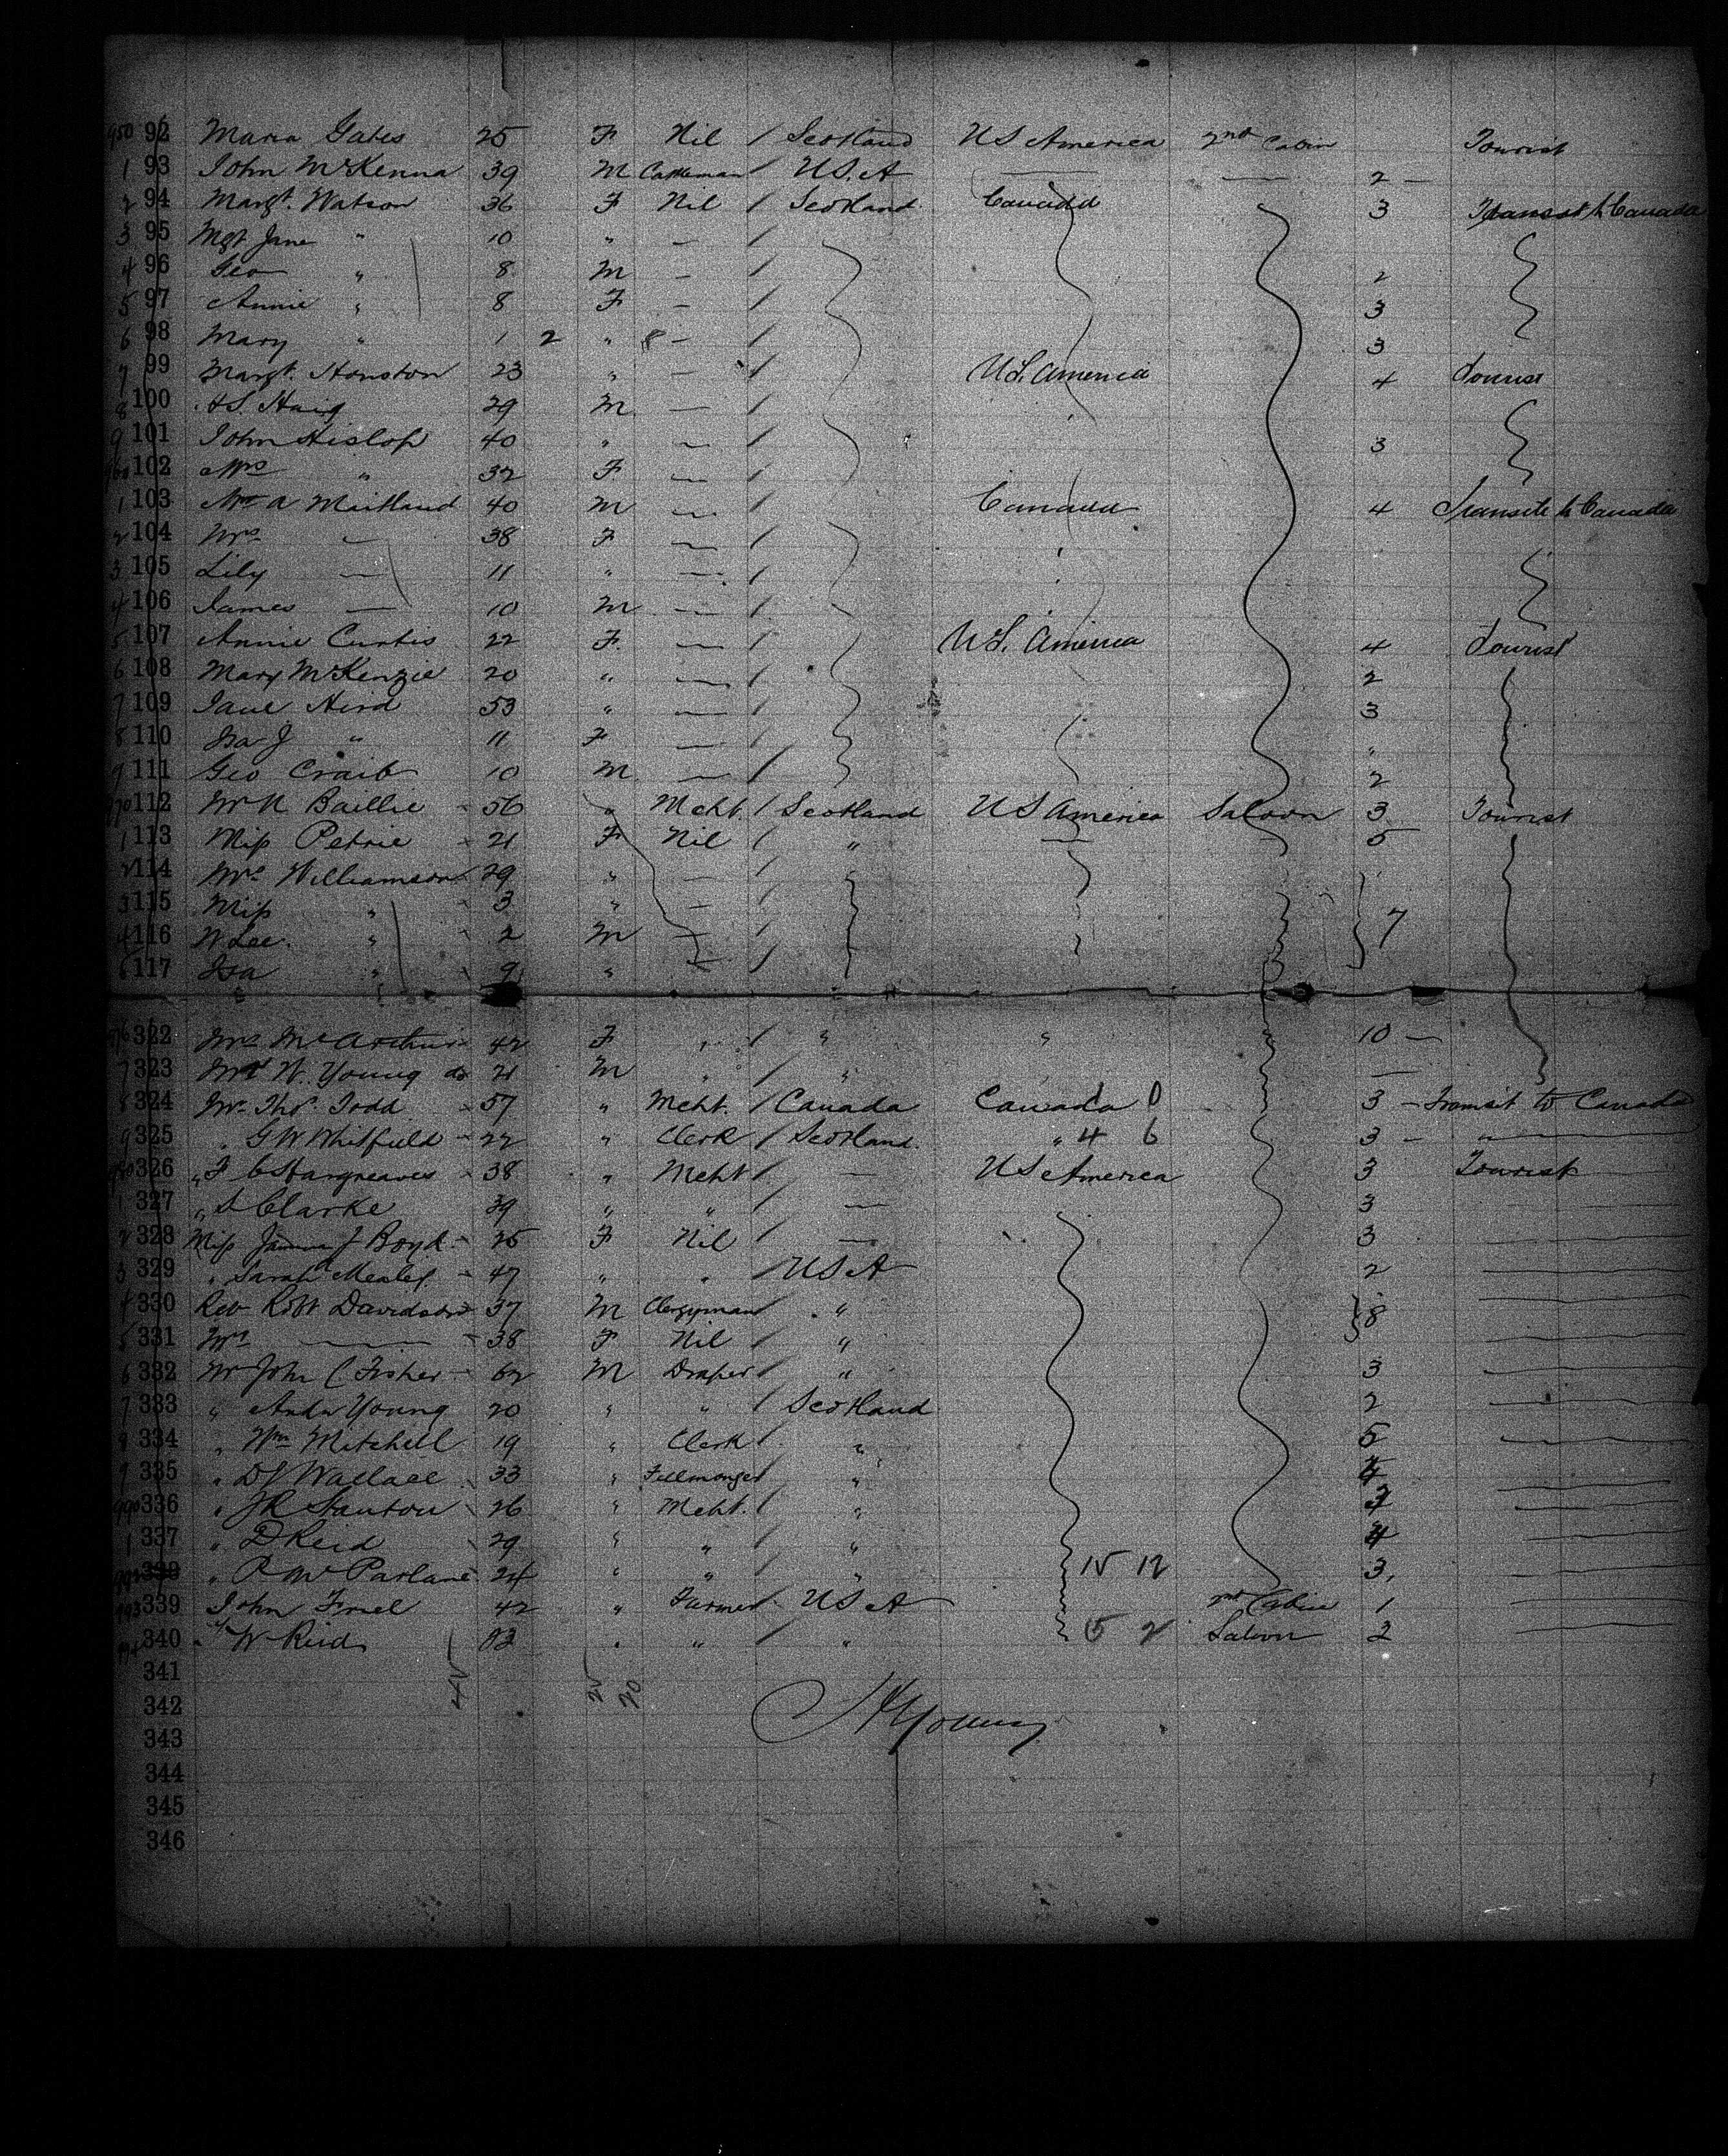 950 92 Maria Gates 25 F Nil / Scotland US America 2nd Cabin Tourist
1 93 John McKenna 39 M Cattleman / U.S.A — — 2 —
2 94 Margt. Watson 36 F Nil / Scotland Canada 3 Transit to Canada
3 95 Mgt Jane " 10 " — /
4 96 Geo " 8 M — / 2
5 97 Annie " 8 F — / 3
6 98 Mary " 1 2 " 8 — / 3
7 99 Margt. Houston 23 " — / U.S. America 4 Tourist
8 100 Haig 29 M — /
9 101 John Hislop 40 " — / 3
960 102 Mrs " 32 F — /
1 103 Mr A Maitland 40 M — / Canada 4 Transit to Canada
2 104 Mrs — 38 F — /
3 105 Lily — 11 " — /
4 106 James — 10 M — /
5 107 Annie Curtis 22 F — / U.S. America 4 Tourist
6 108 Mary McKenzie 20 " — / 2
7 109 Jane Hird 53 " — / 3
8 110 Isa J " 11 F — / "
9 111 Geo Craib 10 M — / 2
970 112 Baillie 56 " Mcht. / Scotland US America Saloon 3 Tourist
1 113 Miss Petrie 21 F Nil / " — 5
2 114 Mrs Williamson 29 " — /
3 115 Miss " 3 " — /
4 116 " 2 M — / 7
5 117 Isa " 9 " /
976 322 Mrs McArthur 42 F " / " " 10 —
7 323 W. Young do 21 M " / " —
8 324 Mr Thos. Todd 57 " Mcht. / Canada Canada 3 — Transit to Canada
9 325 " G W Whitfield 22 " Clerk / Scotland " 4 6 3 — "
980 326 " F C Hargreaves 38 " Mcht / — US America 3 Tourist
1 327 " Clarke 39 " " / — 3
2 328 Miss J Boyd 25 F Nil / — 3
3 329 " Sarah 47 " " / US A 2
4 330 Rev Robt Davidson 37 M Clergyman / " 8
5 331 Mrs — 38 F Nil / "
6 332 Mr John C Fisher 62 M Draper / " 3
7 333 " Andw Young 20 " " / Scotland 2
8 334 " Wm Mitchell 19 " Clerk / " 5
9 335 " Wallace 33 " Fellmonger / "
990 336 " J R Stanton 26 " Mcht. / "
1 337 " D Reid 29 " " / " 4
992 338 " R McParlane 24 " " / " 15 12 3
993 339 John Friel 42 " Farmer / US A 2nd Cabin 1
994 340 " W Reid " " / " 5 2 Saloon 2
341
342
343
344
345
346